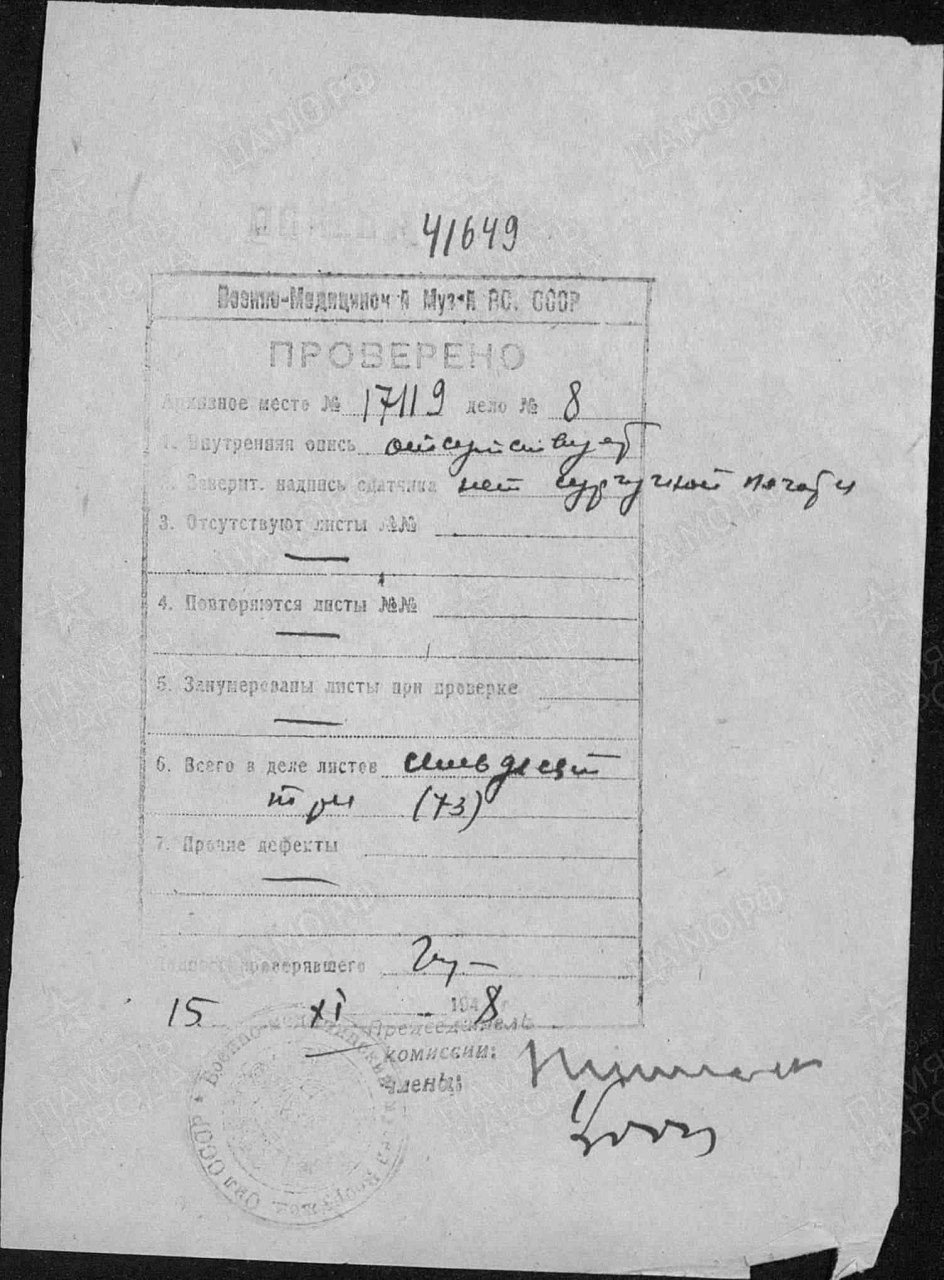 41649
Военно-Медицинский Музей ВС. СССР
ПРОВЕРЕНО
Архивное место № 17119 дело № 8
1. Внутренняя опись отсутствует
2. Заверит. надпись сдатчика нет сургучной печати
3. Отсутствуют листы №№
—
4. Повторяются листы №№
—
5. Занумерованы листы при проверке
—
6. Всего в деле листов семьдесят
три (73)
7. Прочие дефекты
—
проверявшего
15 XI 1948
Председатель
комиссии:
члены:
Военно-медицинский Вооружен. Сил СССР
ЦАМО.РФ
ПАМЯТЬ НАРОДА